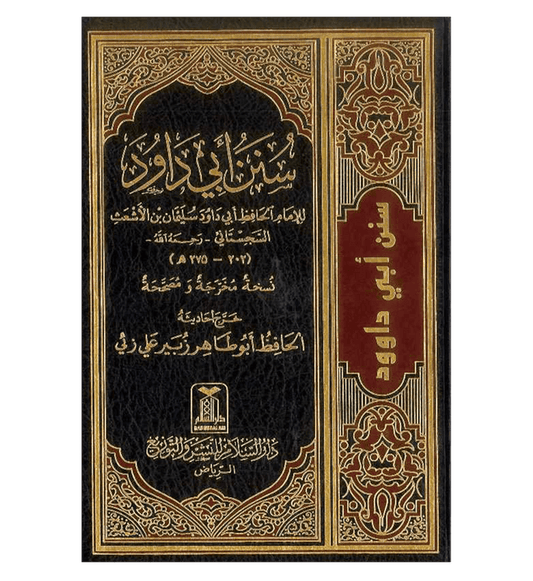 سُنَنُ أَبِي دَاوُد
لِلإِمَامِ الحَافِظِ أَبِي دَاوُدَ سُلَيْمَانَ بْنِ الأَشْعَثِ
السِّجِسْتَانِيِّ - رَحِمَهُ اللهُ -
(٢٠٢ - ٢٧٥ هـ)
نُسْخَةٌ مُخَرَّجَةٌ وَ مُصَحَّحَةٌ
خَرَّجَ أَحَادِيثَهُ
الحَافِظُ أَبُو طَاهِر زُبَير عَلي زَئي
دار السلام
DARUSSALAM
دَارُ السَّلَامِ لِلنَّشْرِ وَالتَّوْزِيعِ
الرِّيَاض
سنن أبي داوود